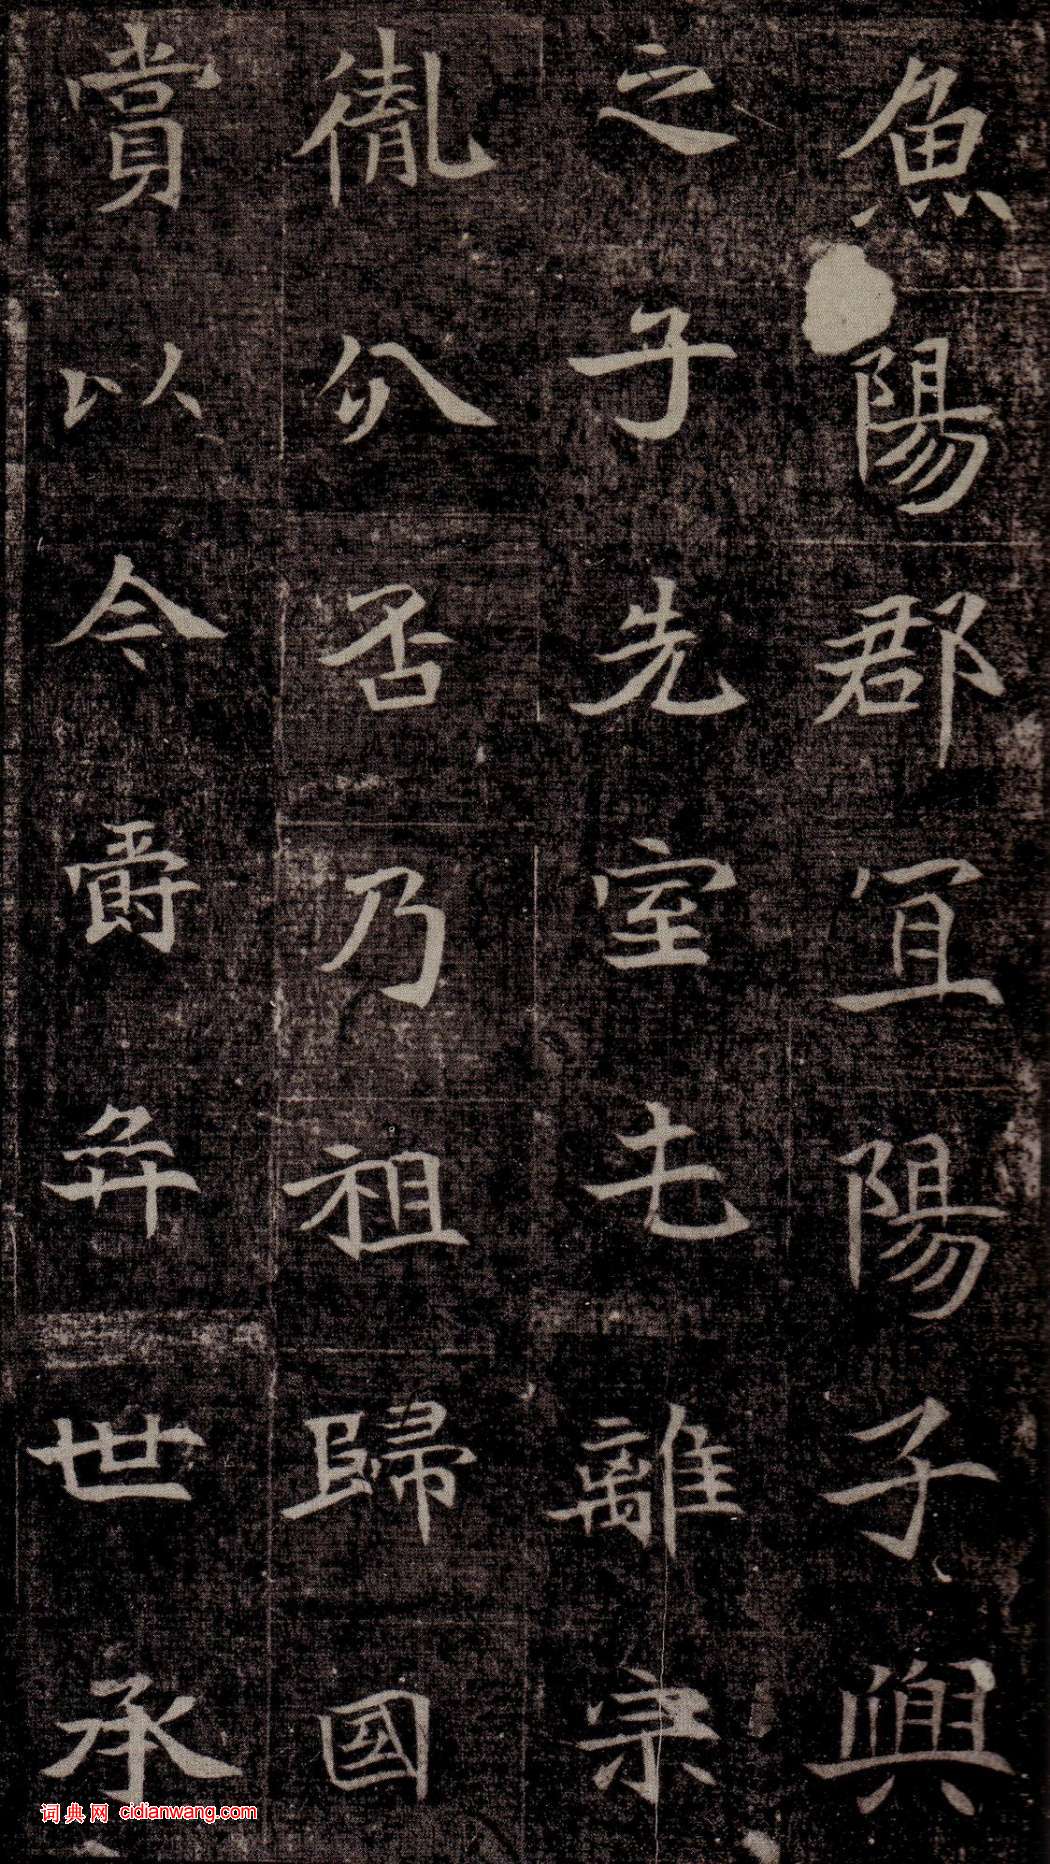 魚陽郡宜陽子興
之子先室屯離宗
胤分否乃祖歸國
賞以今爵弈世承
词典网 cidianwang.com